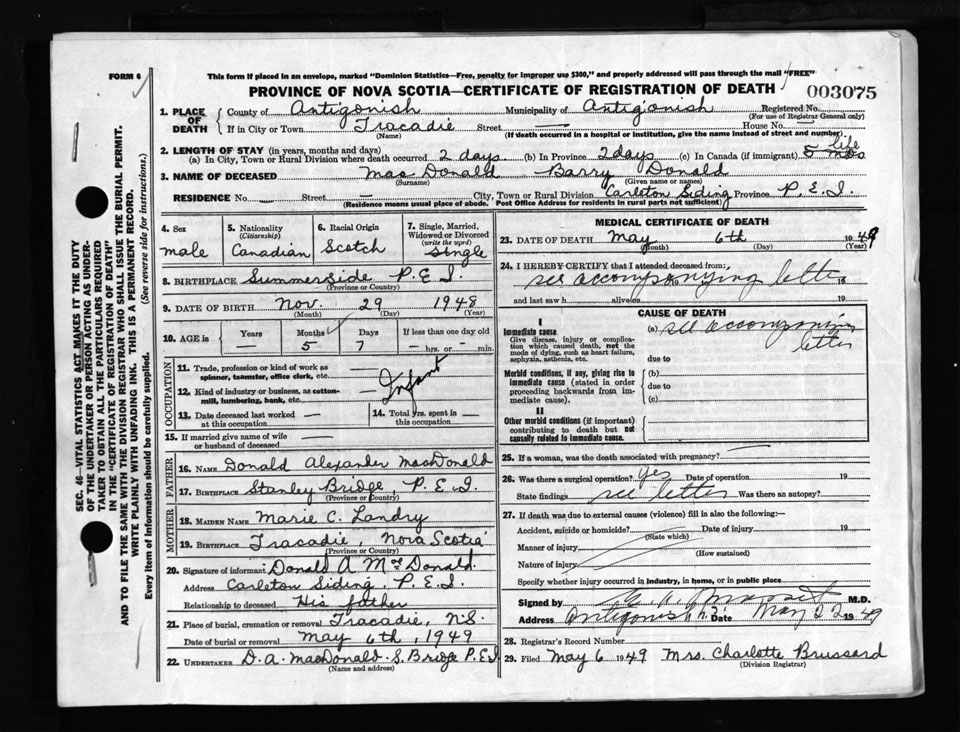 FORM 6
This form if placed in an envelope, marked "Dominion Statistics—Free, penalty for improper use $300," and properly addressed will pass through the mail "FREE"
PROVINCE OF NOVA SCOTIA—CERTIFICATE OF REGISTRATION OF DEATH
003075
1. PLACE OF DEATH
County of Antigonish Municipality of Antigonish Registered No.
(For use of Registrar General only)
If in City or Town Tracadie Street — House No. —
(Name) (If death occurred in a hospital or institution, give the name instead of street and number)
2. LENGTH OF STAY (in years, months and days)
(a) In City, Town or Rural Division where death occurred 2 days (b) In Province 2 days (c) In Canada (if immigrant) life
3. NAME OF DECEASED Mac Donald Barry Donald
(Surname) (Given name or names)
RESIDENCE No. — Street City, Town or Rural Division Carleton Siding Province P.E.I.
(Residence means usual place of abode. Post Office Address for residents in rural parts not sufficient)
4. Sex
male
5. Nationality
(Citizenship)
Canadian
6. Racial Origin
Scotch
7. Single, Married, Widowed or Divorced
(write the word)
Single
8. BIRTHPLACE Summerside P.E.I.
(Province or Country)
9. DATE OF BIRTH Nov. 29 1948
(Month) (Day) (Year)
10. AGE is Years Months Days If less than one day old
— 5 7 — hrs. or — min.
OCCUPATION
11. Trade, profession or kind of work as spinner, teamster, office clerk, etc.
Infant
12. Kind of industry or business, as cotton-mill, lumbering, bank, etc.
13. Date deceased last worked at this occupation —
14. Total yrs. spent in this occupation —
15. If married give name of wife or husband of deceased —
FATHER
16. NAME Donald Alexander MacDonald
17. BIRTHPLACE Stanley Bridge, P.E.I.
(Province or Country)
MOTHER
18. MAIDEN NAME Marie C. Landry
19. BIRTHPLACE Tracadie, Nova Scotia
(Province or Country)
20. Signature of informant Donald A McDonald
Address Carleton Siding, P.E.I.
Relationship to deceased His father
21. Place of burial, cremation or removal Tracadie, N.S.
Date of burial or removal May 6th, 1949
22. UNDERTAKER D.A. MacDonald S. Bridge P.E.I.
(Name and address)
MEDICAL CERTIFICATE OF DEATH
23. DATE OF DEATH May 6th 1949
(Month) (Day) (Year)
24. I HEREBY CERTIFY that I attended deceased from:
see accompanying letter 19
and last saw h alive on 19
CAUSE OF DEATH
I
Immediate cause
Give disease, injury or complication which caused death, not the mode of dying, such as heart failure, asphyxia, asthenia, etc.
(a) see accompanying letter
due to
Morbid conditions, if any, giving rise to immediate cause (stated in order proceeding backwards from immediate cause).
(b)
due to
(c)
II
Other morbid conditions (if important) contributing to death but not causally related to immediate cause.
25. If a woman, was the death associated with pregnancy?
26. Was there a surgical operation? Yes Date of operation 19
State findings see letter Was there an autopsy?
27. If death was due to external causes (violence) fill in also the following:—
Accident, suicide or homicide? Date of injury 19
(State which)
Manner of injury
(How sustained)
Nature of injury
Specify whether injury occurred in industry, in home, or in public place
Signed by M.D.
Address Antigonish Date May 22 1949
28. Registrar's Record Number
29. Filed May 6 1949 Mrs. Charlotte Brussard
(Division Registrar)
SEC. 46—VITAL STATISTICS ACT MAKES IT THE DUTY
OF THE UNDERTAKER OR PERSON ACTING AS UNDER-
TAKER TO OBTAIN ALL THE PARTICULARS REQUIRED
IN THE "CERTIFICATE OF REGISTRATION OF DEATH"
AND TO FILE THE SAME WITH THE DIVISION REGISTRAR WHO SHALL ISSUE THE BURIAL PERMIT.
WRITE PLAINLY WITH UNFADING INK. THIS IS A PERMANENT RECORD.
Every item of information should be carefully supplied. (See reverse side for instructions.)